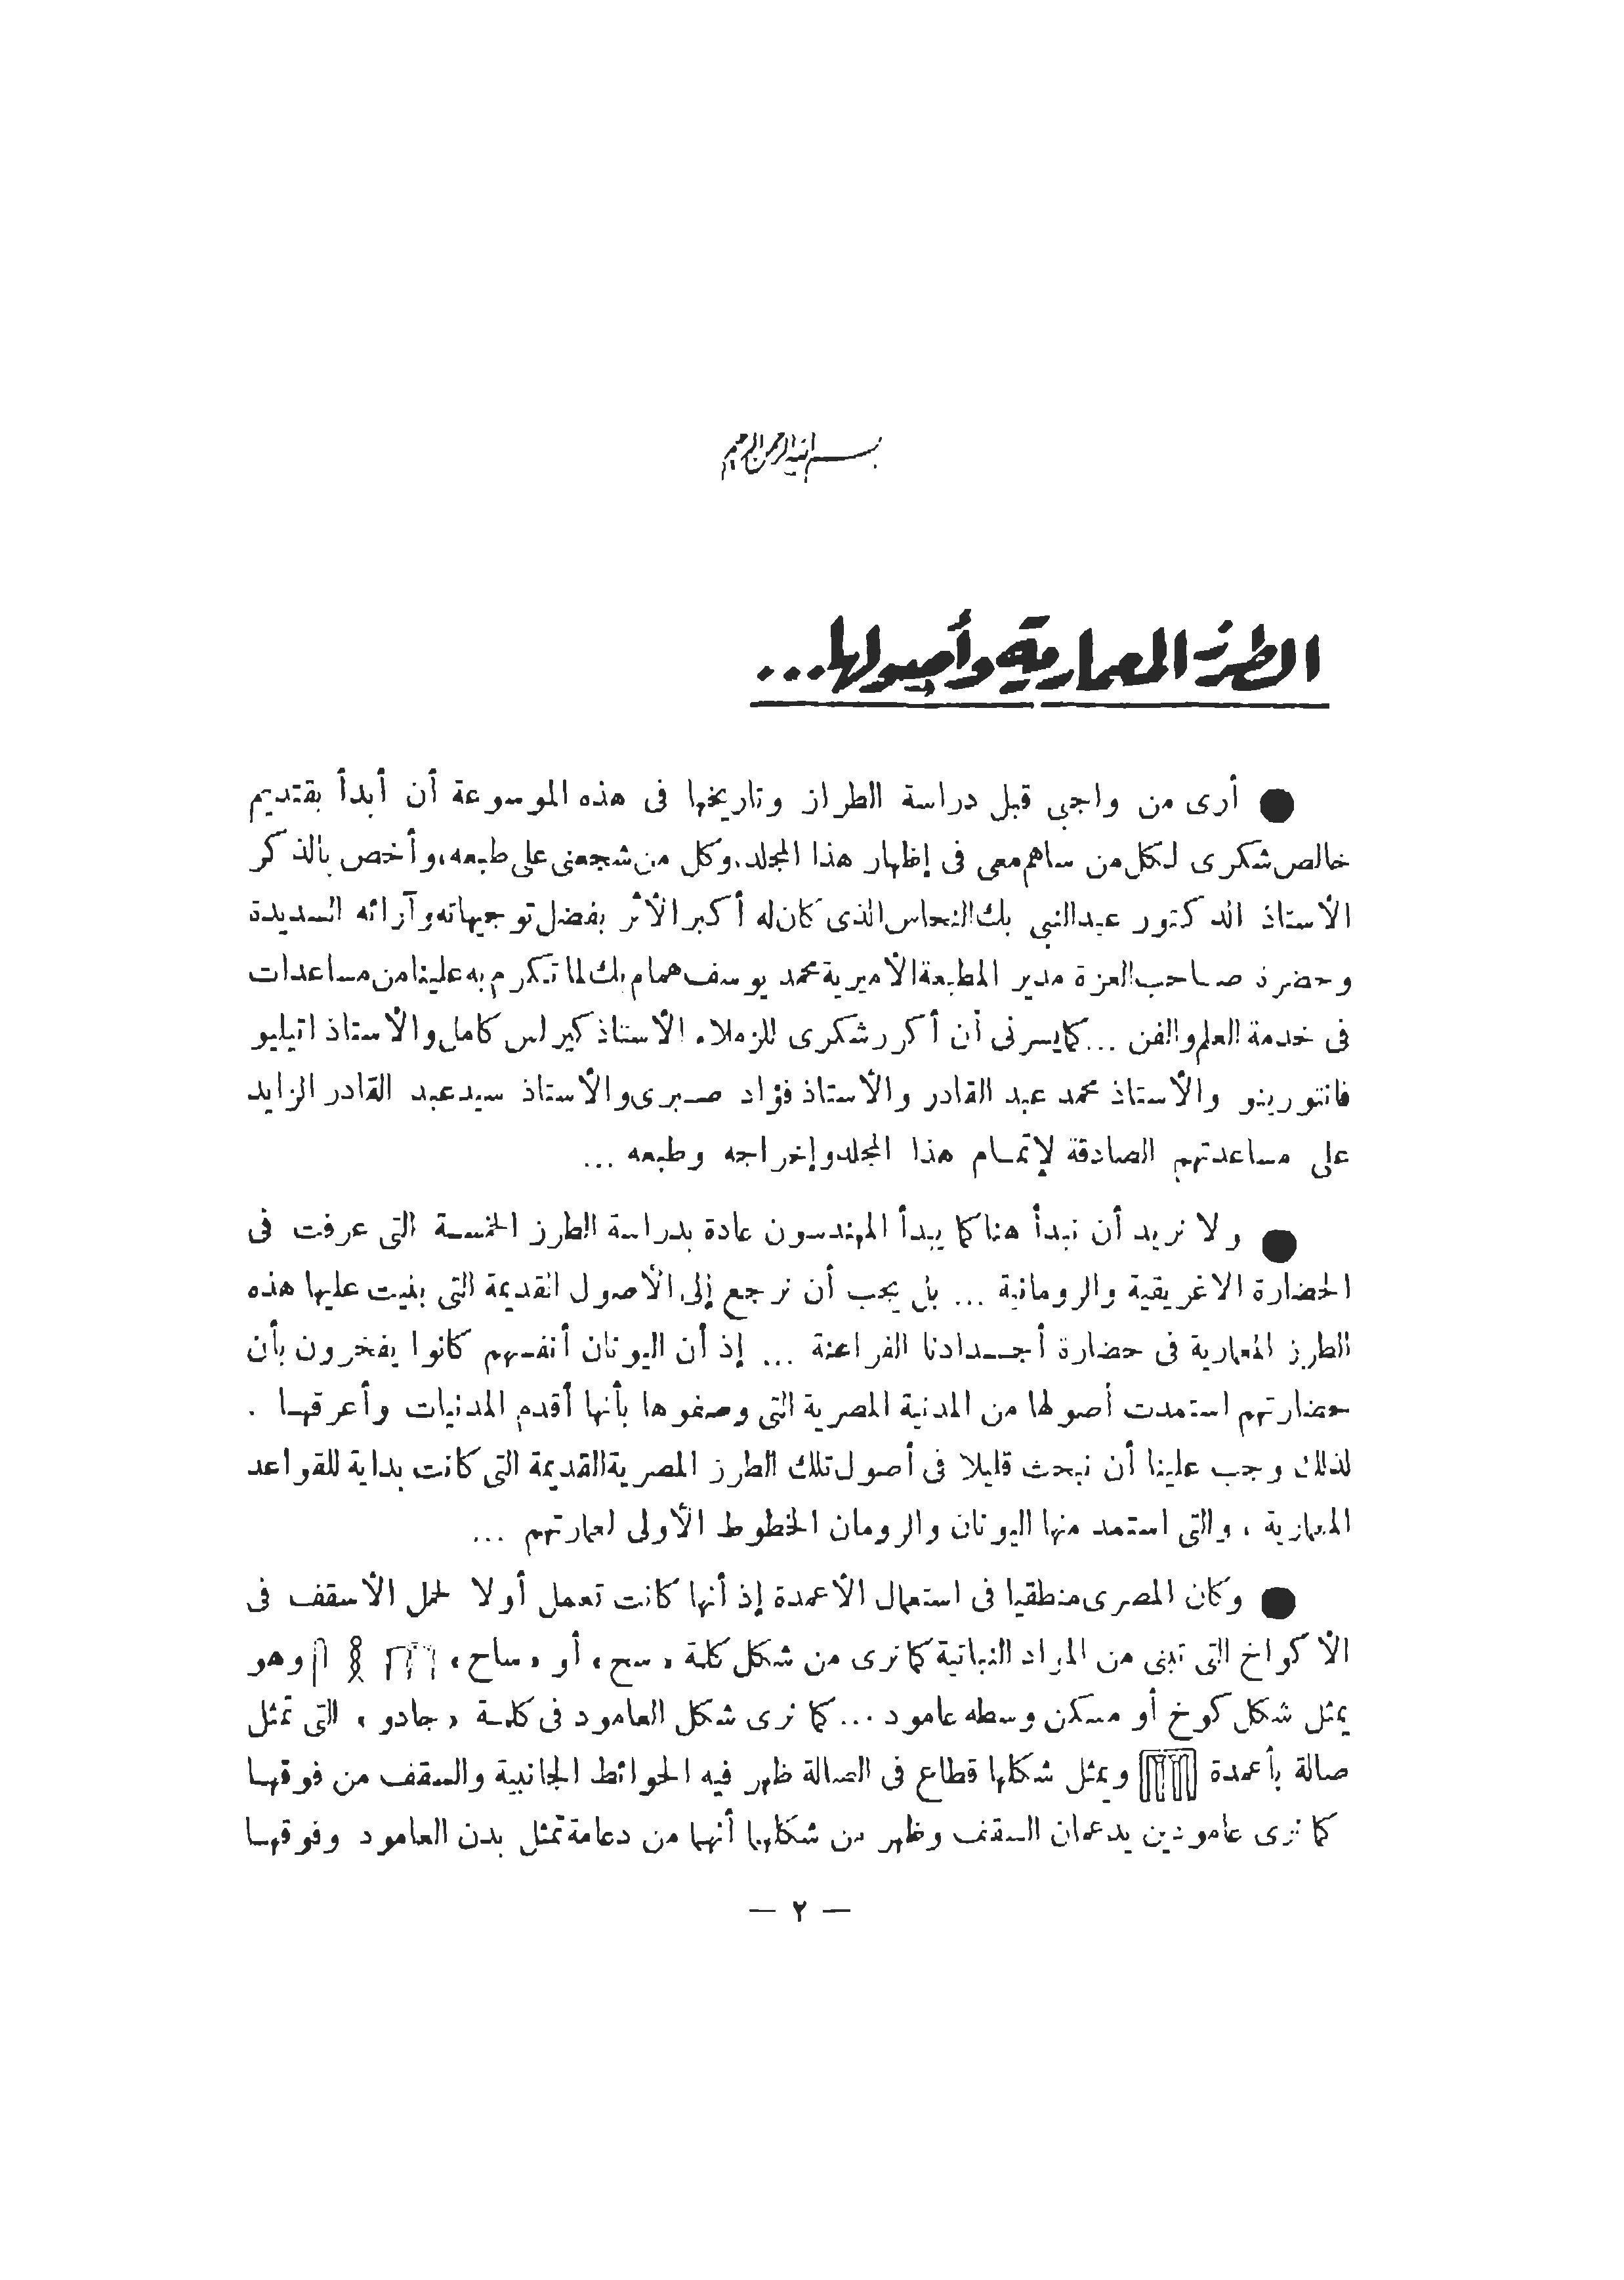 بسم الله الرحمن الرحيم
الطرز المعمارية وأصولها...
● أرى من واجبى قبل دراسة الطراز وتاريخها فى هذه الموسوعة أن أبدأ بتقديم
خالص شكرى لكل من ساهم معى فى إظهار هذا المجلد، وكل من شجعنى على طبعه، وأخص بالذكر
الأستاذ الدكتور عبد النبي بك النحاس الذى كان له أكبر الأثر بفضل توجيهاته وآرائه السديدة
وحضرة صاحب العزة مدير المطبعة الأميرية محمد يوسف همام بك لما تكرم به علينا من مساعدات
فى خدمة العلم والفن ... كما يسرنى أن أكرر شكرى للزملاء الأستاذ كيرلس كامل والأستاذ اتيليو
فانتورينو والأستاذ محمد عبد القادر والأستاذ فؤاد صبرى والأستاذ سيد عبد القادر الزايد
على مساعدتهم الصادقة لإتمام هذا المجلد وإخراجه وطبعه ...
● ولا نريد أن نبدأ هنا كما يبدأ المهندسون عادة بدراسة الطرز الخمسة التى عرفت فى
الحضارة الاغريقية والرومانية ... بل يجب أن نرجع إلى الأصول القديمة التى بنيت عليها هذه
الطرز المعمارية فى حضارة أجدادنا الفراعنة ... إذ أن اليونان أنفسهم كانوا يفخرون بأن
حضارتهم استمدت أصولها من المدنية المصرية التى وصفوها بأنها أقدم المدنيات وأعرقها .
لذلك وجب علينا أن نبحث قليلا فى أصول تلك الطرز المصرية القديمة التى كانت بداية للقواعد
المعمارية ، والتى استمد منها اليونان والرومان الخطوط الأولى لعمارتهم ...
● وكان المصرى منطقيا فى استعمال الأعمدة إذ أنها كانت تعمل أولا لحمل الأسقف فى
الأكواخ التى تبنى من المواد النباتية كما نرى من شكل كلمة « سح » أو « ساح » وهو
يمثل شكل كوخ أو مسكن وسطه عامود ... كما نرى شكل العامود فى كلمة « جادو » التى تمثل
صالة بأعمدة ويمثل شكلها قطاع فى الصالة ظهر فيه الحوائط الجانبية والسقف من فوقها
كما نرى عامودين يدعمان السقف وظهر من شكلهما أنهما من دعامة تمثل بدن العامود وفوقها
— ٢ —